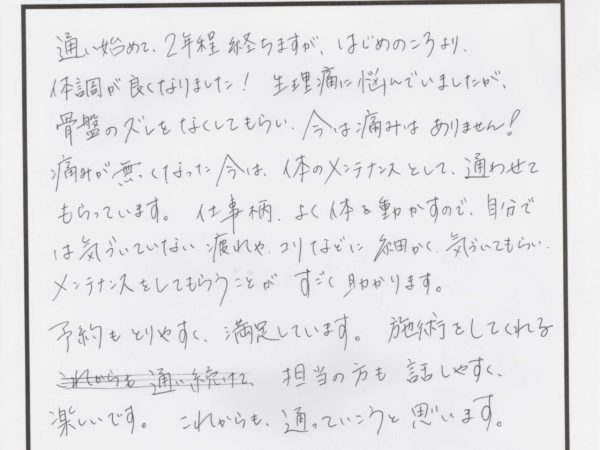 通い始めて、2年程経ちますが、はじめのころより、
体調が良くなりました！ 生理痛に悩んでいましたが、
骨盤のズレをなくしてもらい、今は痛みはありません！
痛みが無くなった今は、体のメンテナンスとして、通わせて
もらっています。 仕事柄、よく体を動かすので、自分で
は気づいていない疲れや、コリなどに細かく、気づいてもらい、
メンテナンスをしてもらうことがすごく助かります。
予約もとりやすく、満足しています。 施術をしてくれる
これからも通い続けて、 担当の方も話しやすく、
楽しいです。 これからも、通っていこうと思います。